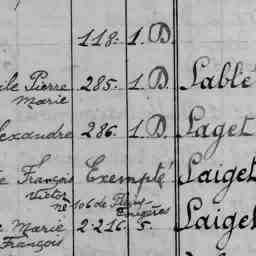 118. 1. D.
ile Pierre 285. 1. D. Lablé
Marie
lexandre 286. 1. D. Laget
e François Exempté Laiget
Victor
né 106 de
e Marie 2.216. 5. Laiget
François